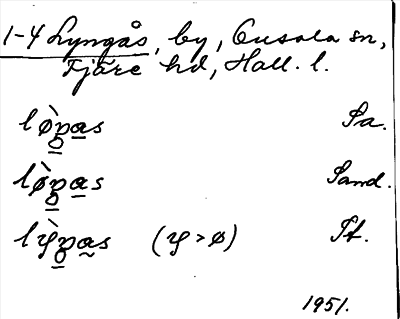 1-4 Lyngås, by, Onsala sn,
Fjäre hd, Hall. l.
lø̀ŋas Sa.
lø̀ŋas Sand.
lỳŋas (y > ø) Pf.
1951.